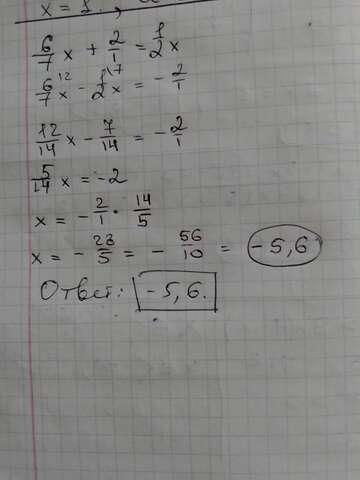 x = 1.
6/7 x + 2/1 = 1/2 x
6/7 x ¹² - 1/2 x ¹⁷ = - 2/1
12/14 x - 7/14 = - 2/1
5/14 x = -2
x = - 2/1 · 14/5
x = - 28/5 = - 56/10 = -5,6
Ответ: -5,6.